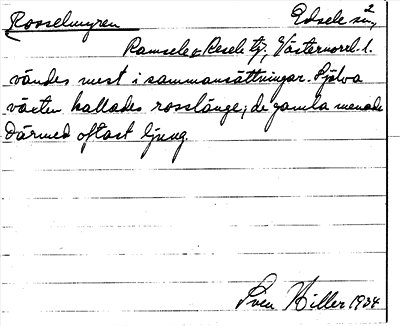 Rosselmyren Edsele sn, 2
Ramsele & Resele tg, Västernorrl. l.
vändes mest i sammansättningar. Själva
växten kallades rosslänge; de gamla menade
därmed oftast ljung.
Sven Hiller 1934